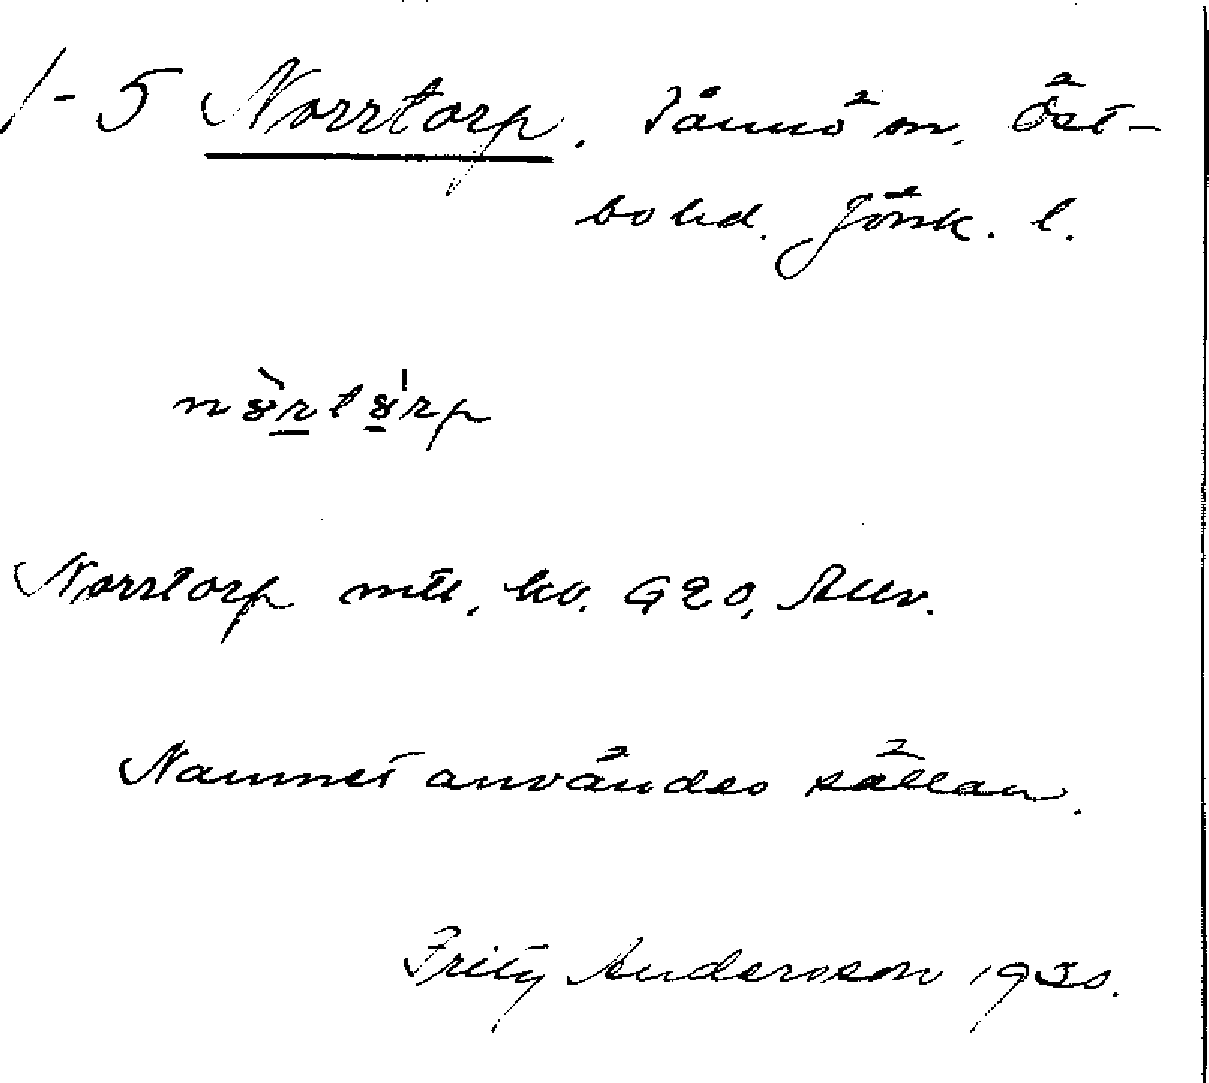 1-5 Norrtorp. Tånnö sn, Öst-
bo hd. Jönk. l.
Norrtorp mtl, kv. G20,
Namnet användes sällan.
Fritz Andersson 1930.